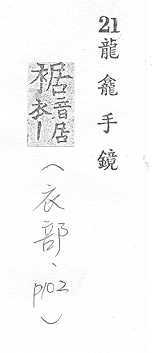 21 龍龕手鏡
裾音居衣丨
（衣部、p102）